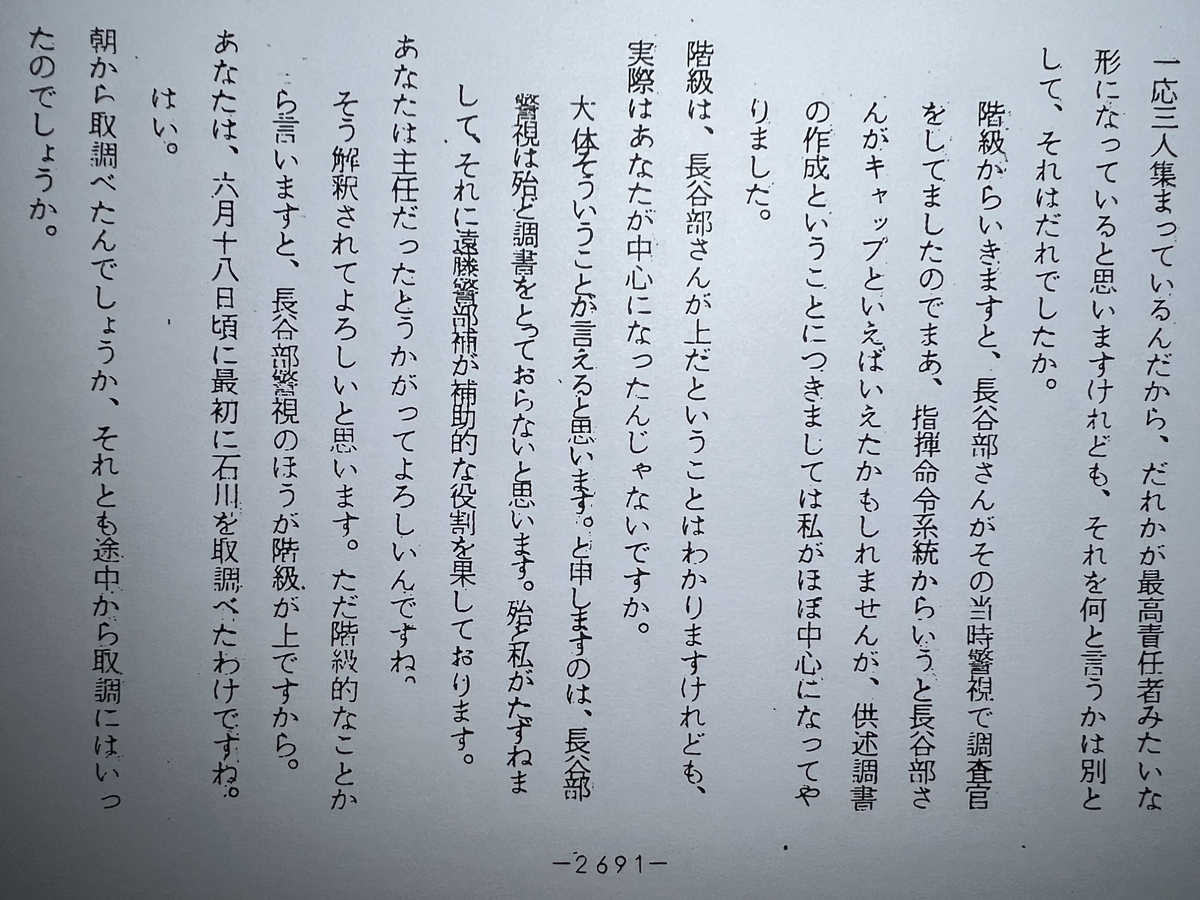 一応三人集まっているんだから、だれかが最高責任者みたいな
形になっていると思いますけれども、それを何と言うかは別と
して、それはだれでしたか。
階級からいきますと、長谷部さんがその当時警視で調査官
をしてましたのでまあ、指揮命令系統からいうと長谷部さ
んがキャップといえばいえたかもしれませんが、供述調書
の作成ということにつきましては私がほぼ中心になってや
りました。
階級は、長谷部さんが上だということはわかりますけれども、
実際はあなたが中心になったんじゃないですか。
大体そういうことが言えると思います。と申しますのは、長谷部
警視は殆ど調書をとっておらないと思います。殆ど私がたずねま
して、それに遠藤警部補が補助的な役割を果しております。
あなたは主任だったとうかがってよろしいんですね。
そう解釈されてよろしいと思います。ただ階級的なことか
ら言いますと、長谷部警視のほうが階級が上ですから。
あなたは、六月十八日頃に最初に石川を取調べたわけですね。
はい。
朝から取調べたんでしょうか、それとも途中から取調にはいっ
たのでしょうか。
—2691—